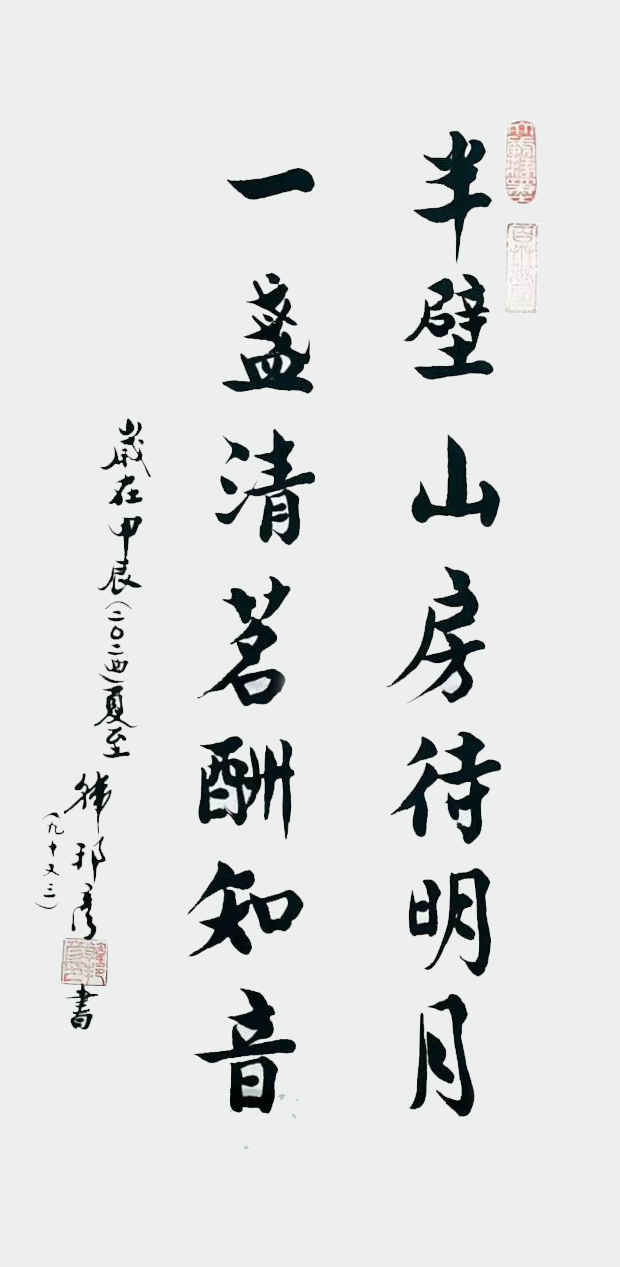 半壁山房待明月
一盏清茗酬知音
岁在甲辰(二〇二四)夏至
(九十又三)
書